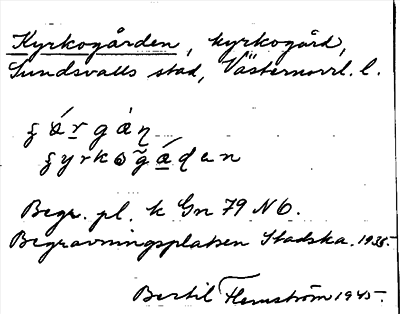 Kyrkogården, kyrkogård,
Sundsvalls stad, Västernorrl. l.
Begr. pl. k Gn 79 N6.
Begravningsplatsen Stadska. 1938.
Bertil Flemström 1945.